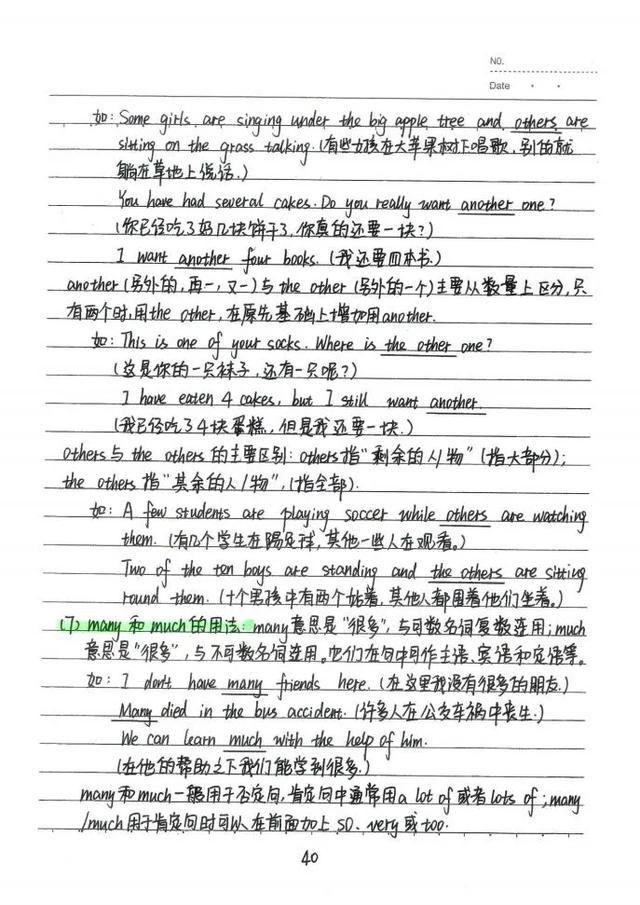 NO.
Date
如: Some girls are singing under the big apple tree and others are
sitting on the grass talking. (有些女孩在大苹果树下唱歌,别的就
躺在草地上说话.)
You have had several cakes. Do you really want another one?
(你已经吃了好几块饼干了,你真的还要一块?)
I want another four books. (我还要四本书.)
another (另外的,再一,又一) 与 the other (另外的一个) 主要从数量上区分,只
有两个时,用the other,在原先基础上增加用another.
如: This is one of your socks. Where is the other one?
(这是你的一只袜子,还有一只呢?)
I have eaten 4 cakes, but I still want another.
(我已经吃了4块蛋糕,但是我还要一块.)
others与 the others的主要区别: others指“剩余的人/物” (指大部分);
the others 指“其余的人/物”, (指全部).
如: A few students are playing soccer while others are watching
them. (有几个学生在踢足球,其他一些人在观看。)
Two of the ten boys are standing and the others are sitting
round them. (十个男孩中有两个站着,其他人都围着他们坐着。)
(7) many 和 much的用法: many意思是“很多”,与可数名词复数连用; much
意思是“很多”,与不可数名词连用。它们在句中可作主语、宾语和定语等。
如: I don't have many friends here. (在这里我没有很多的朋友.)
Many died in the bus accident. (许多人在公交车祸中丧生.)
We can learn much with the help of him.
(在他的帮助之下我们能学到很多.)
many和much一般用于否定句,肯定句中通常用a lot of 或者lots of; many
/much用于肯定句时可以在前面加上so、very或too.
40